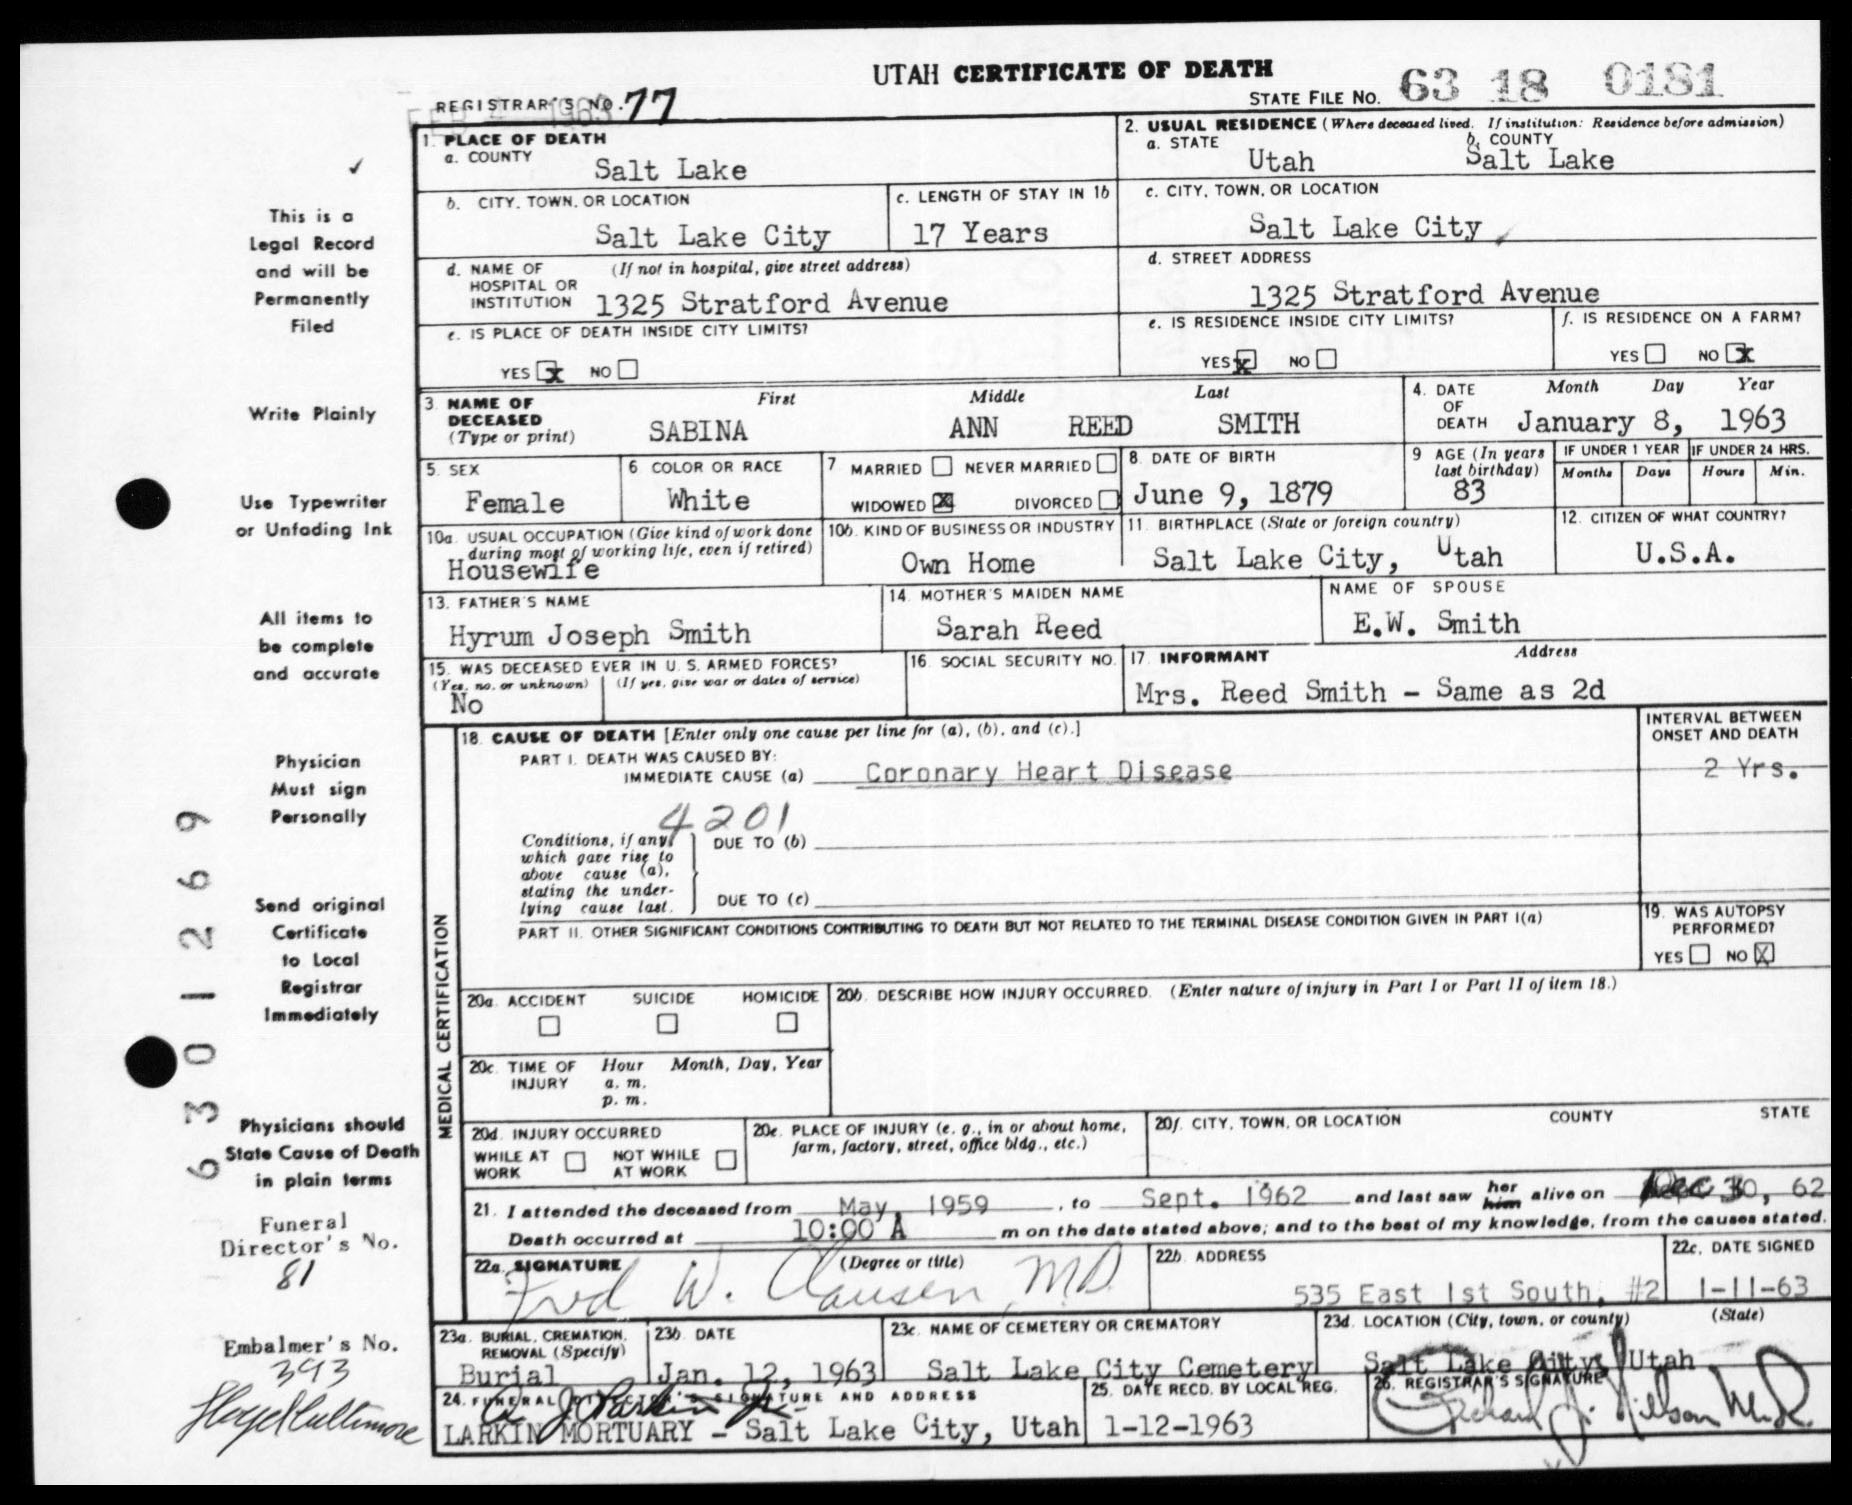 UTAH CERTIFICATE OF DEATH
REGISTRAR'S NO. 77
FEB 4 1963
STATE FILE NO. 63 18 0181
1. PLACE OF DEATH
a. COUNTY
Salt Lake
2. USUAL RESIDENCE (Where deceased lived. If institution: Residence before admission)
a. STATE Utah b. COUNTY Salt Lake
b. CITY, TOWN, OR LOCATION
Salt Lake City
c. LENGTH OF STAY IN 1b
17 Years
c. CITY, TOWN, OR LOCATION
Salt Lake City
d. NAME OF HOSPITAL OR INSTITUTION (If not in hospital, give street address)
1325 Stratford Avenue
d. STREET ADDRESS
1325 Stratford Avenue
e. IS PLACE OF DEATH INSIDE CITY LIMITS?
YES X NO
e. IS RESIDENCE INSIDE CITY LIMITS?
YES X NO
f. IS RESIDENCE ON A FARM?
YES NO X
3. NAME OF DECEASED (Type or print)
First Middle Last
SABINA ANN REED SMITH
4. DATE OF DEATH Month Day Year
January 8, 1963
5. SEX
Female
6. COLOR OR RACE
White
7. MARRIED NEVER MARRIED
WIDOWED X DIVORCED
8. DATE OF BIRTH
June 9, 1879
9. AGE (In years last birthday)
83
IF UNDER 1 YEAR
Months Days
IF UNDER 24 HRS.
Hours Min.
10a. USUAL OCCUPATION (Give kind of work done during most of working life, even if retired)
Housewife
10b. KIND OF BUSINESS OR INDUSTRY
Own Home
11. BIRTHPLACE (State or foreign country)
Salt Lake City, Utah
12. CITIZEN OF WHAT COUNTRY?
U.S.A.
13. FATHER'S NAME
Hyrum Joseph Smith
14. MOTHER'S MAIDEN NAME
Sarah Reed
NAME OF SPOUSE
E.W. Smith
15. WAS DECEASED EVER IN U. S. ARMED FORCES?
(Yes, no, or unknown) (If yes, give war or dates of service)
No
16. SOCIAL SECURITY NO.
17. INFORMANT Address
Mrs. Reed Smith - Same as 2d
MEDICAL CERTIFICATION
18. CAUSE OF DEATH [Enter only one cause per line for (a), (b), and (c).]
INTERVAL BETWEEN ONSET AND DEATH
PART I. DEATH WAS CAUSED BY:
IMMEDIATE CAUSE (a) Coronary Heart Disease 2 Yrs.
4201
Conditions, if any, which gave rise to above cause (a), stating the underlying cause last.
DUE TO (b)
DUE TO (c)
PART II. OTHER SIGNIFICANT CONDITIONS CONTRIBUTING TO DEATH BUT NOT RELATED TO THE TERMINAL DISEASE CONDITION GIVEN IN PART I(a)
19. WAS AUTOPSY PERFORMED?
YES NO X
20a. ACCIDENT SUICIDE HOMICIDE
20b. DESCRIBE HOW INJURY OCCURRED. (Enter nature of injury in Part I or Part II of item 18.)
20c. TIME OF INJURY Hour Month, Day, Year
a. m.
p. m.
20d. INJURY OCCURRED
WHILE AT WORK NOT WHILE AT WORK
20e. PLACE OF INJURY (e. g., in or about home, farm, factory, street, office bldg., etc.)
20f. CITY, TOWN, OR LOCATION COUNTY STATE
21. I attended the deceased from May, 1959, to Sept. 1962 and last saw her him alive on Dec 30, 62
Death occurred at 10:00 A m on the date stated above; and to the best of my knowledge, from the causes stated.
22a. SIGNATURE (Degree or title)
Fred W. Clausen, M.D.
22b. ADDRESS
535 East 1st South, #2
22c. DATE SIGNED
1-11-63
23a. BURIAL, CREMATION, REMOVAL (Specify)
Burial
23b. DATE
Jan. 12, 1963
23c. NAME OF CEMETERY OR CREMATORY
Salt Lake City Cemetery
23d. LOCATION (City, town, or county) (State)
Salt Lake City, Utah
24. FUNERAL DIRECTOR'S SIGNATURE AND ADDRESS
A J Larkin Jr.
LARKIN MORTUARY - Salt Lake City, Utah
25. DATE RECD. BY LOCAL REG.
1-12-1963
26. REGISTRAR'S SIGNATURE
This is a
Legal Record
and will be
Permanently
Filed
Write Plainly
Use Typewriter
or Unfading Ink
All items to
be complete
and accurate
Physician
Must sign
Personally
Send original
Certificate
to Local
Registrar
Immediately
Physicians should
State Cause of Death
in plain terms
Funeral
Director's No.
81
Embalmer's No.
393
6301269